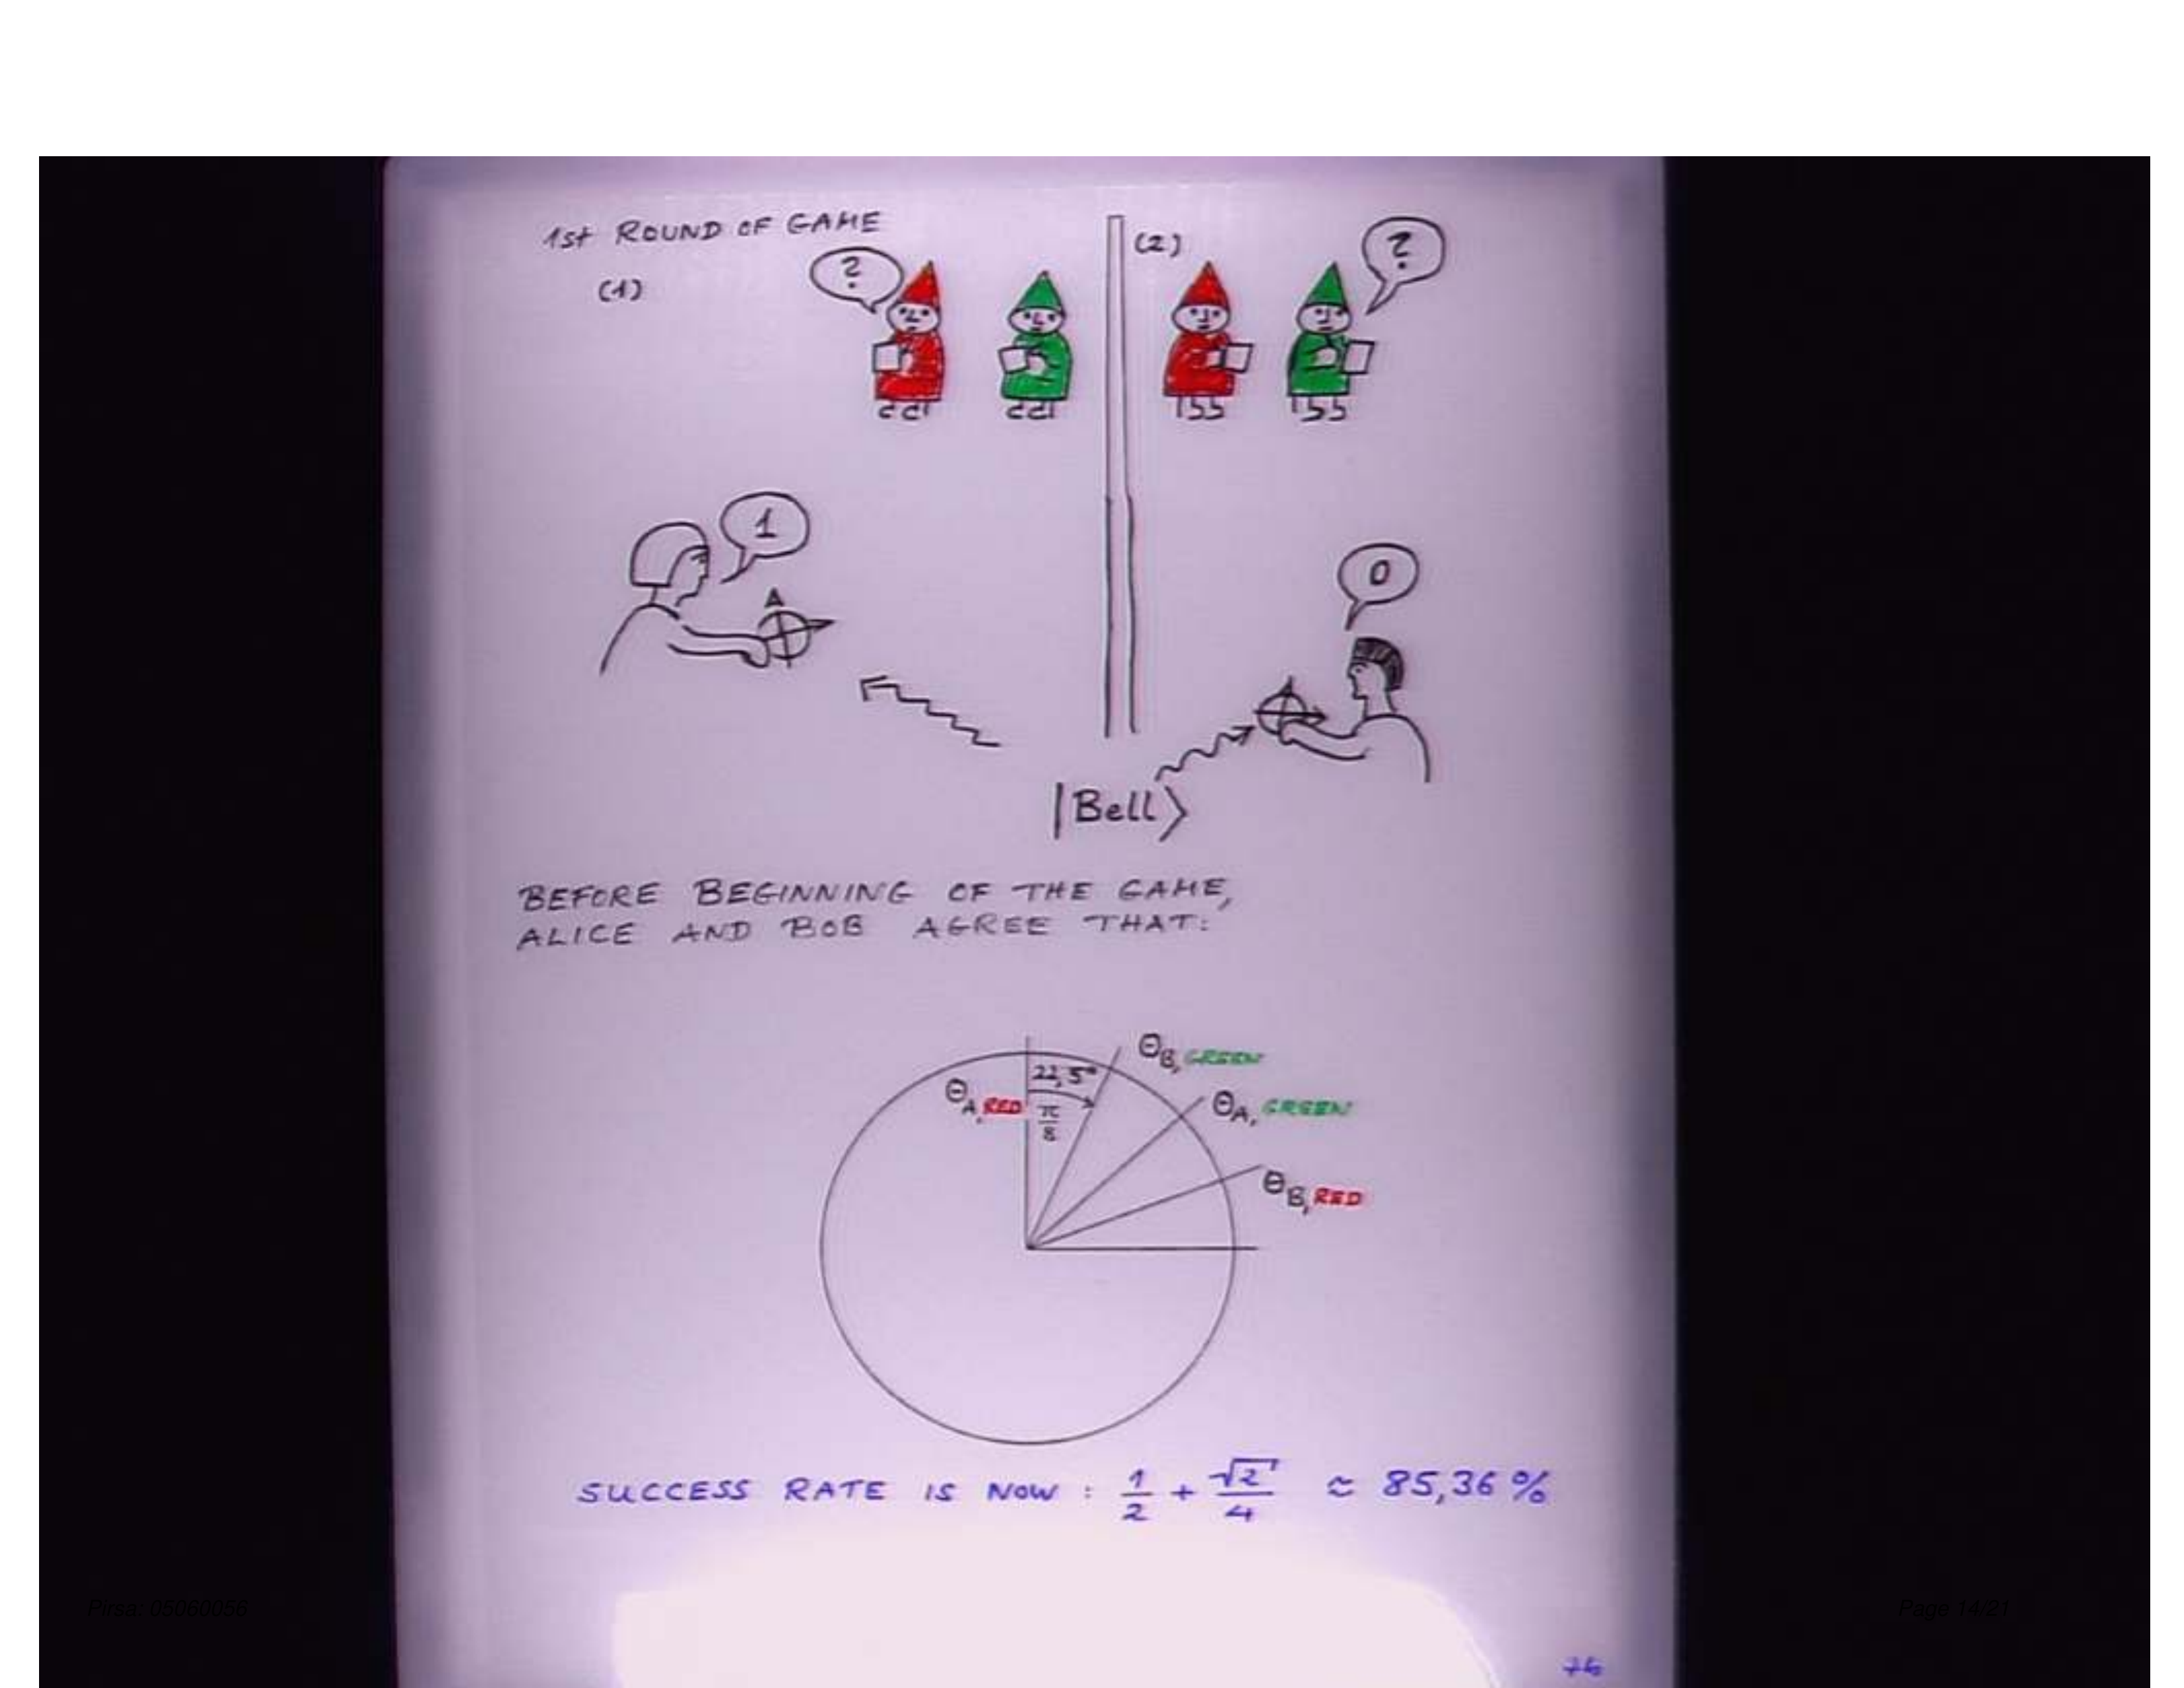 1st ROUND OF GAME
(1)
?
(2)
?
1
0
|Bell⟩
BEFORE BEGINNING OF THE GAME,
ALICE AND BOB AGREE THAT:
22,5°
π/8
Θ_A, RED
Θ_B, GREEN
Θ_A, GREEN
Θ_B, RED
SUCCESS RATE IS NOW : 1/2 + √2/4 ≈ 85,36 %
Pirsa: 05060056
Page 14/21
76